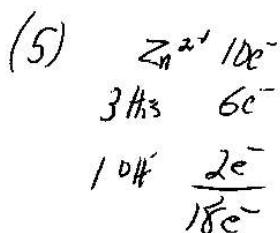 (5) Zn²⁺ 10e⁻
3 His 6e⁻
1 OH⁻ 2e⁻
18e⁻